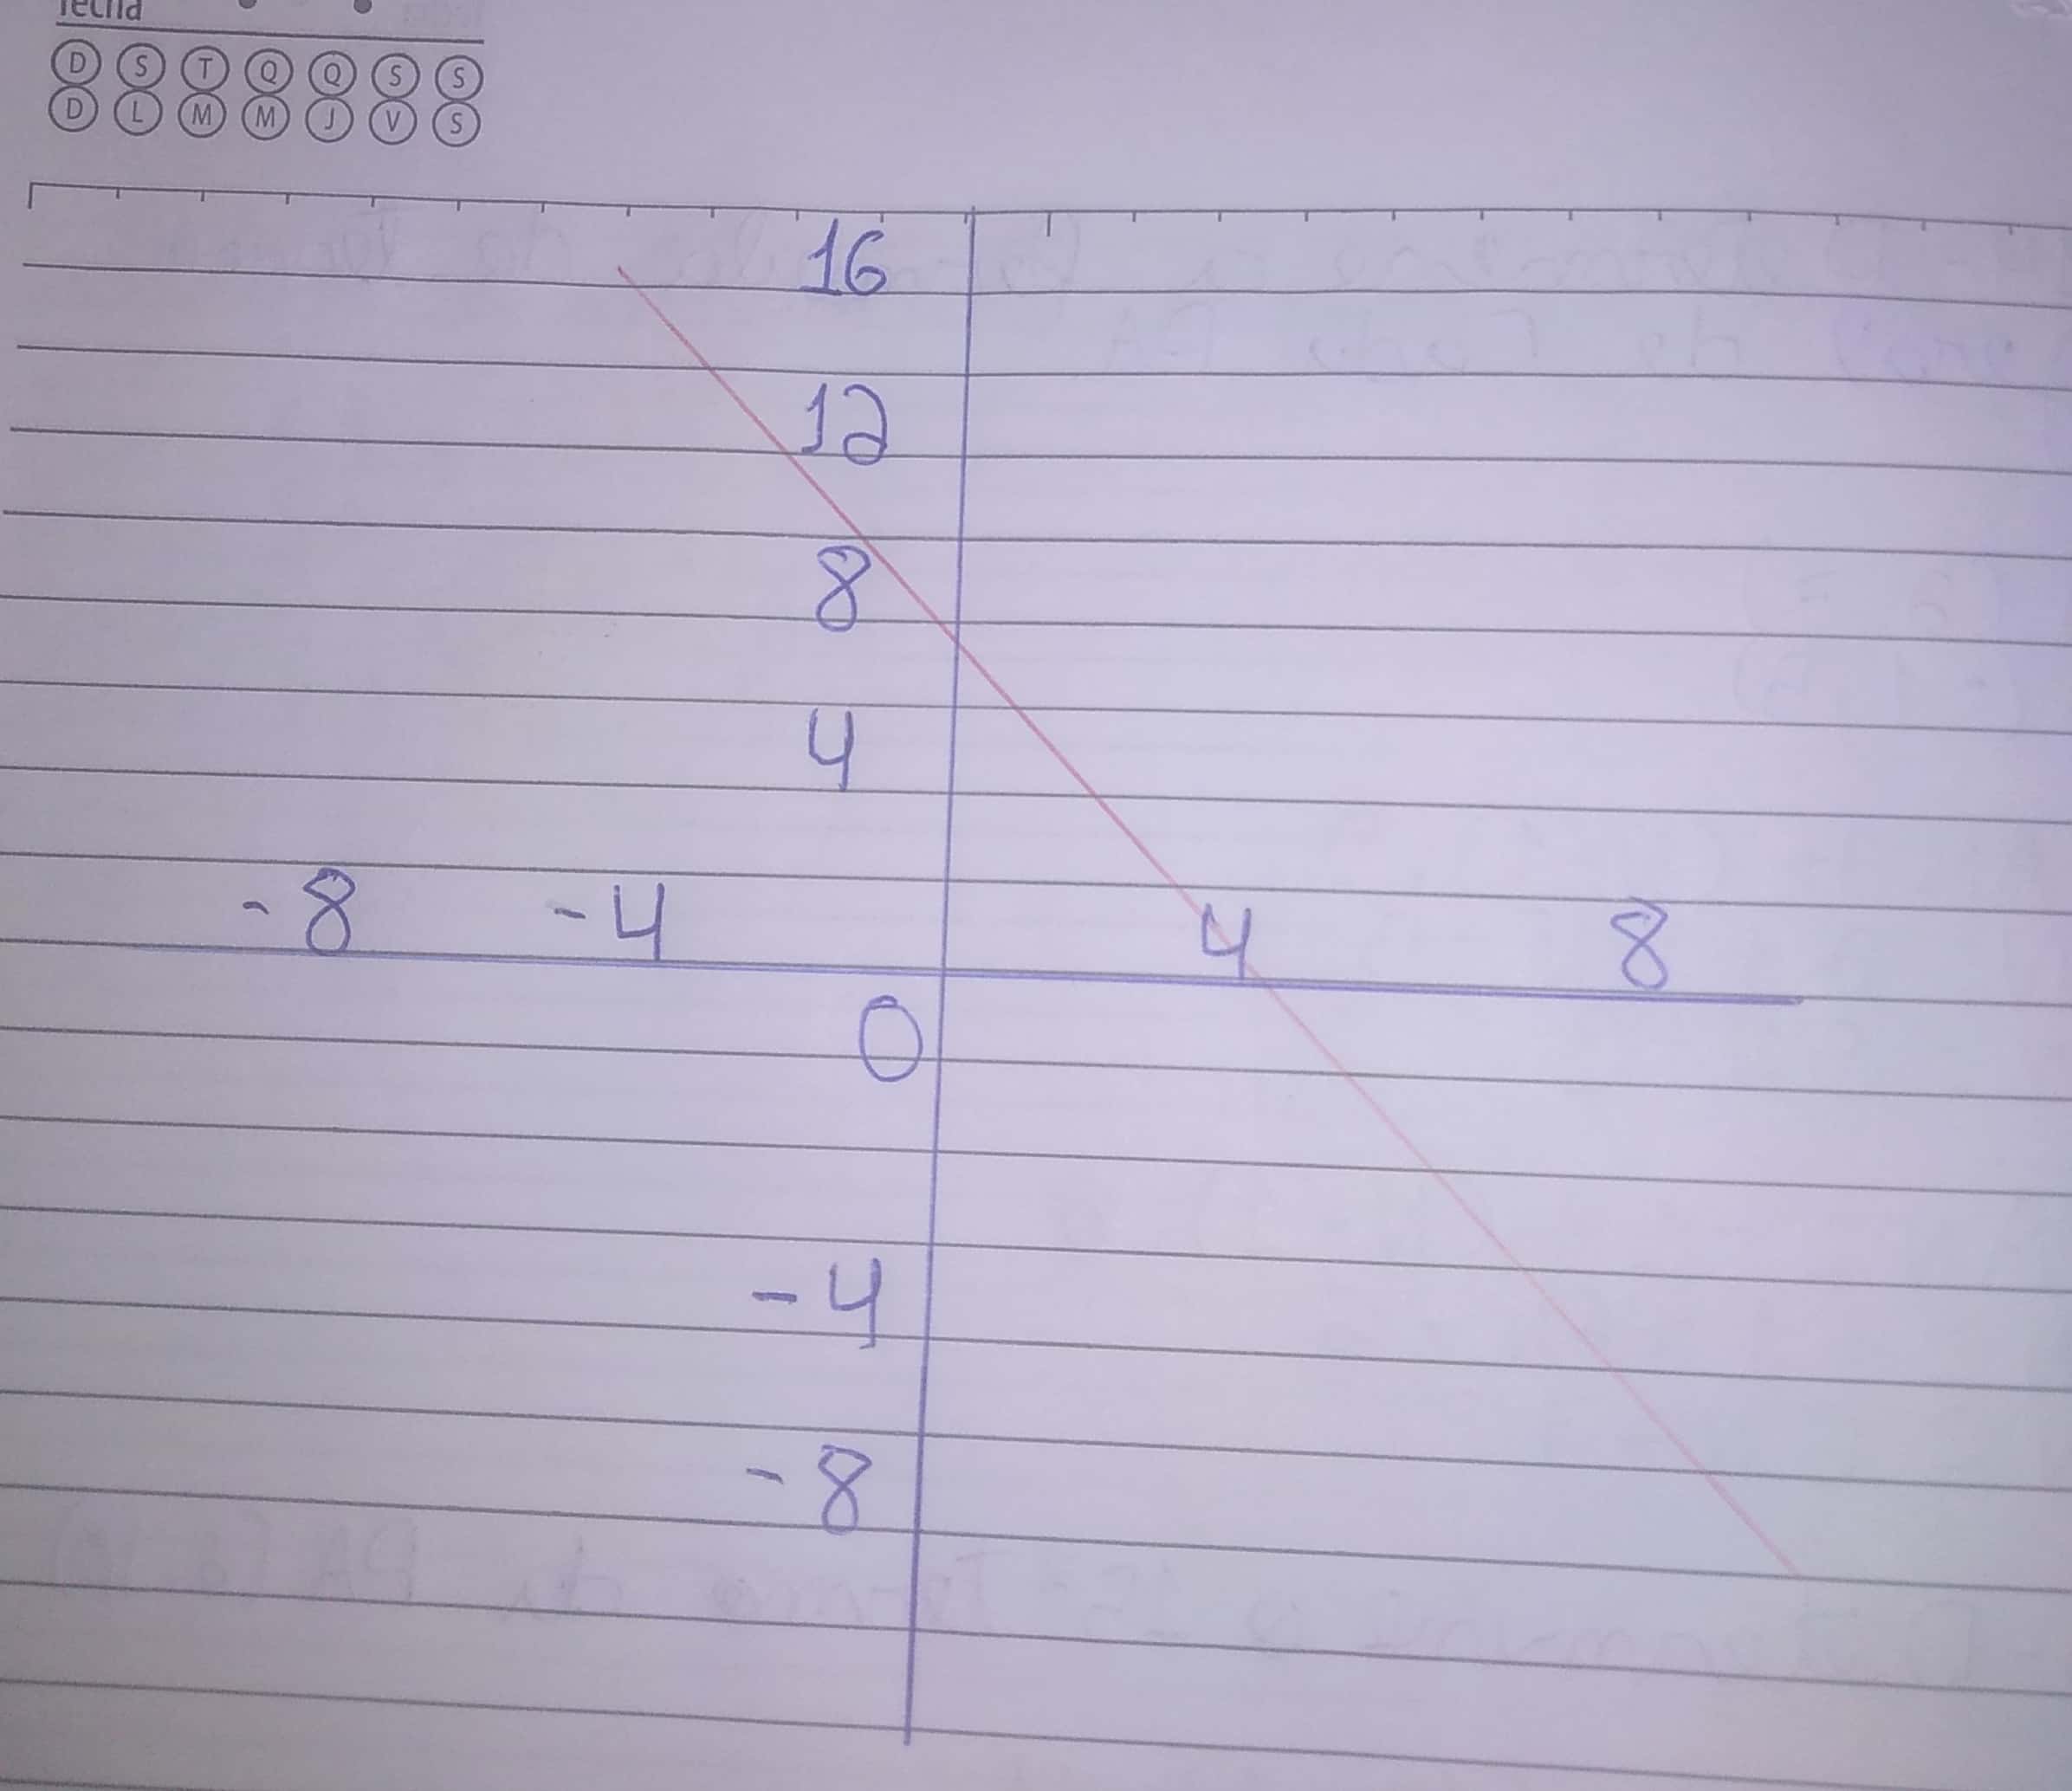 fecha
D S T Q Q S S
D L M M J V S
16
12
8
4
-8 -4 4 8
0
-4
-8